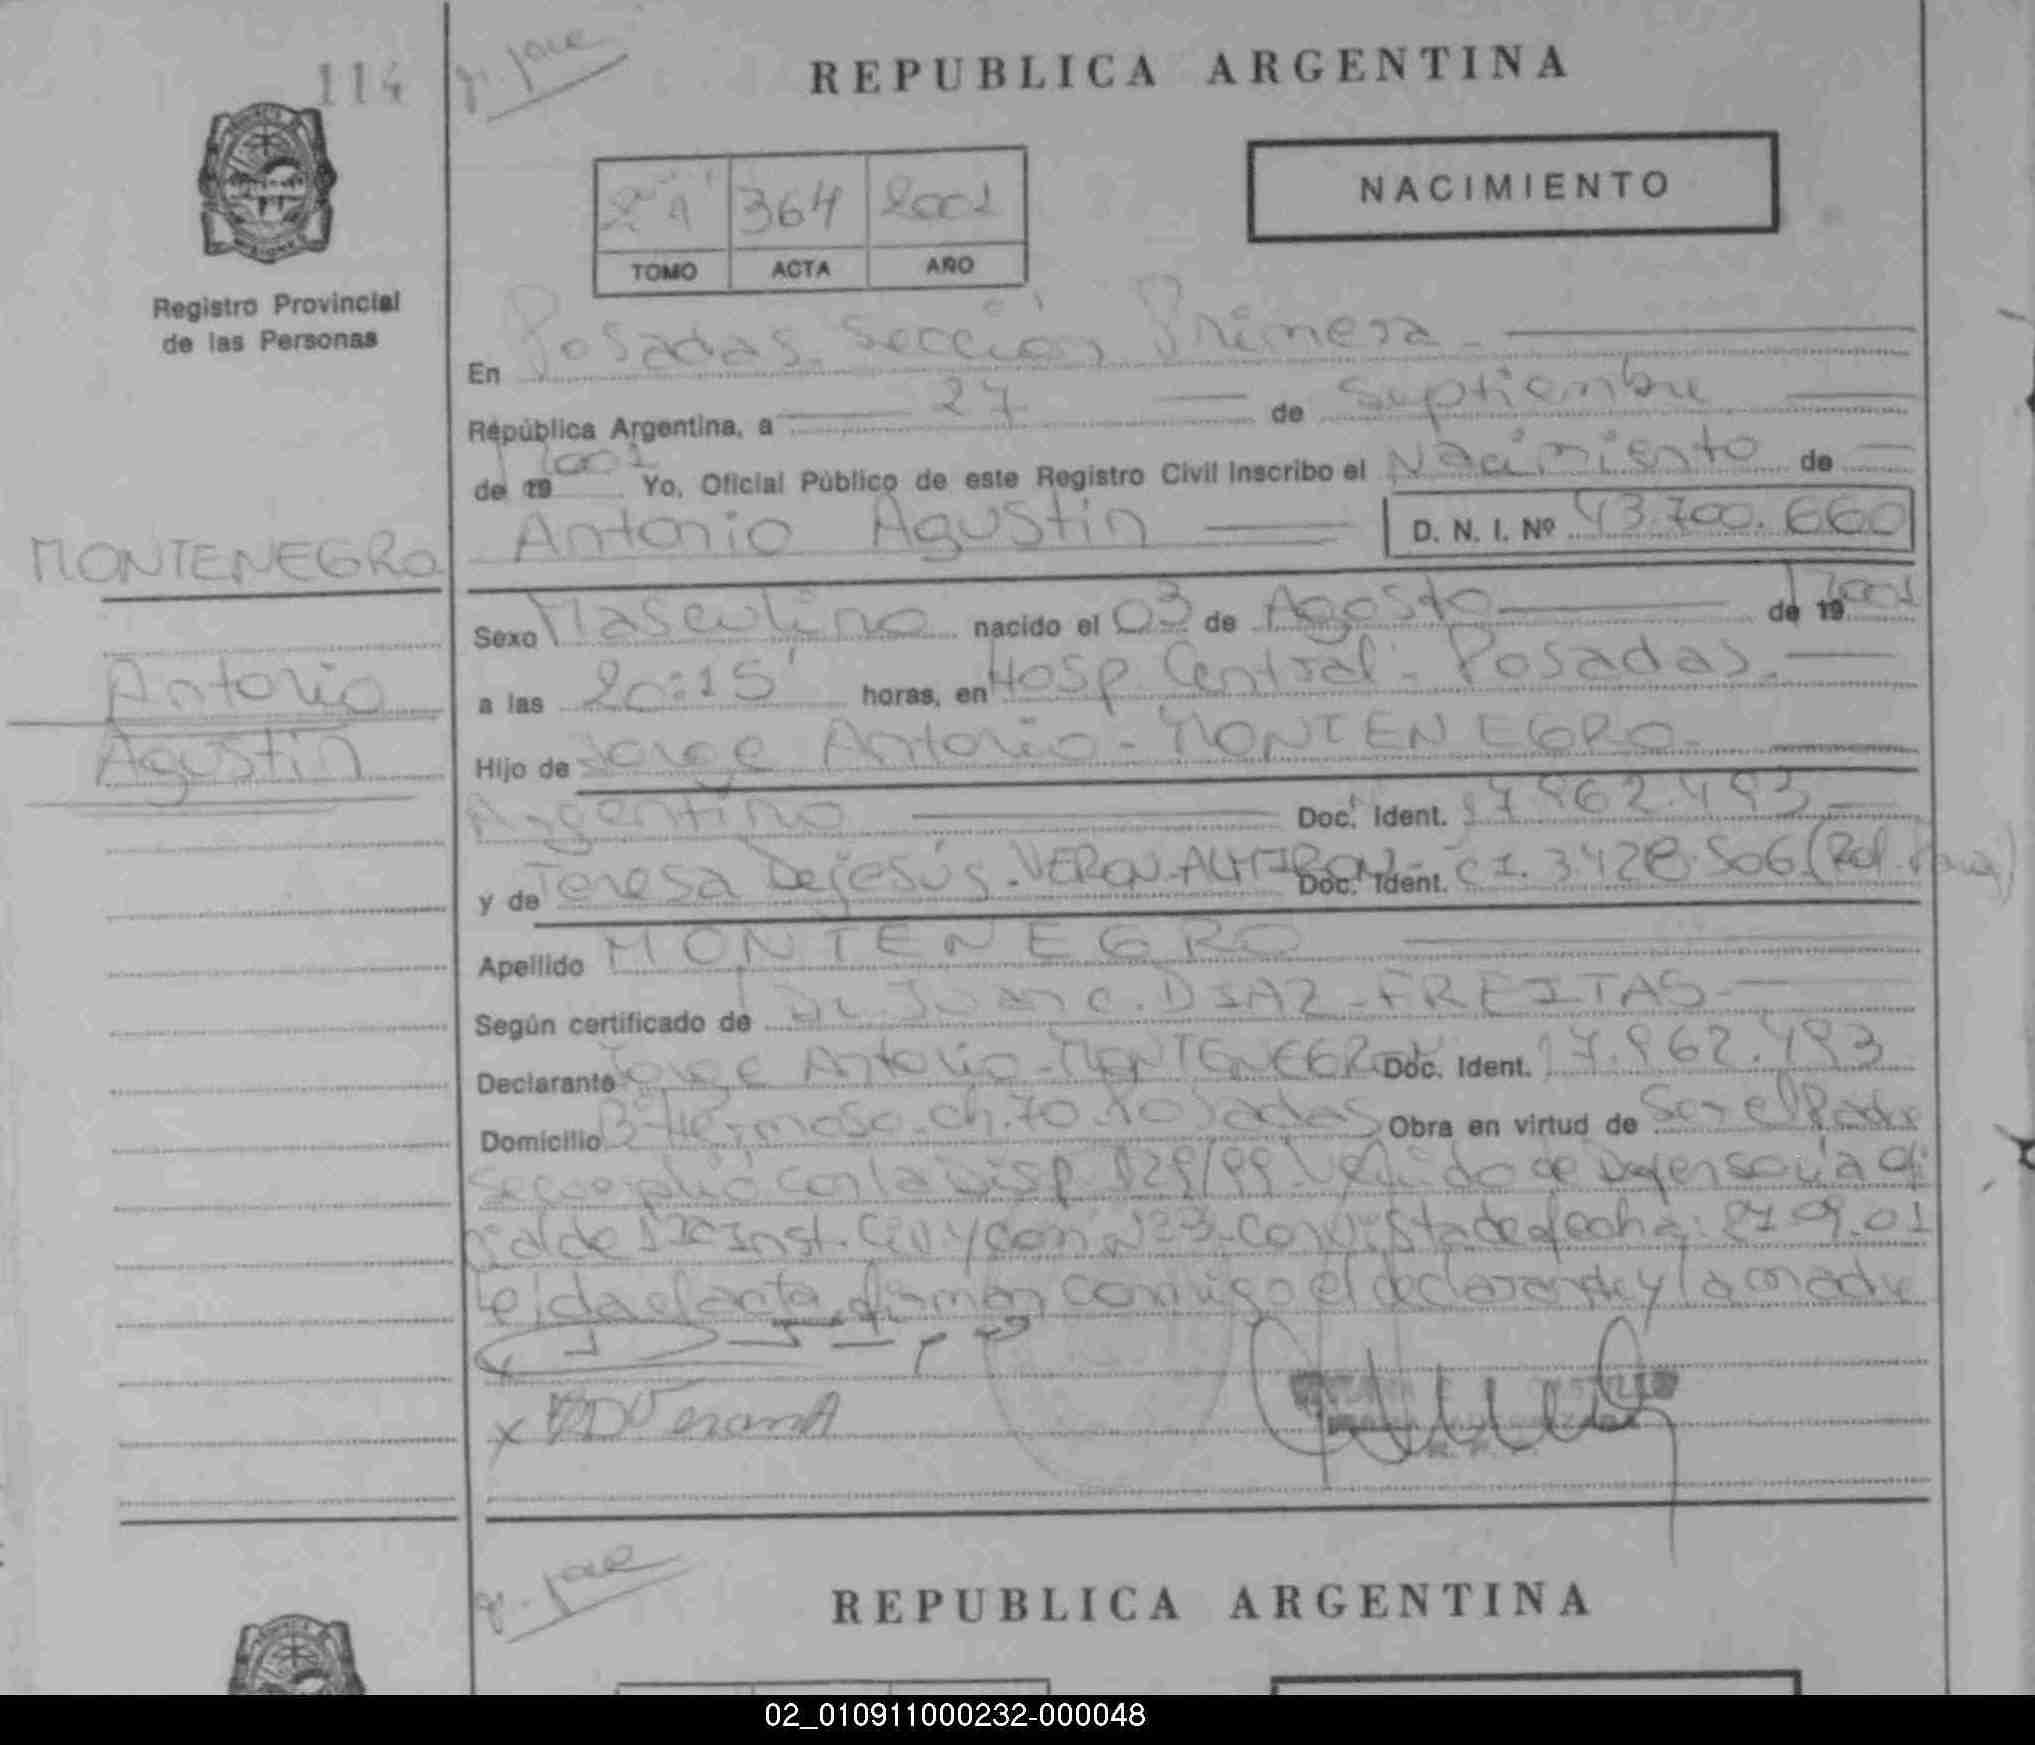 114
REPUBLICA ARGENTINA
364 2001
TOMO ACTA AÑO
NACIMIENTO
Registro Provincial
de las Personas
En Posadas. Sección Primera.
República Argentina, a 27 de Septiembre
de 19 2001 Yo, Oficial Público de este Registro Civil Inscribo el Nacimiento de
Antonio Agustin D. N. I. Nº 43.700.660
MONTENEGRO
Antonio
Agustin
Sexo Masculino nacido el 03 de Agosto de 19 2001
a las 20:15 horas, en Hosp. Central - Posadas.
Hijo de Jorge Antonio - MONTENEGRO.
Argentino Doc. Ident. 17.962.493
y de Teresa Dejesús. VERON ALMIRON - Doc. Ident. C I. 3.428.506 (
Apellido MONTENEGRO
Según certificado de Dr. Juan C. DIAZ - FREITAS -
Declarante Jorge Antonio - MONTENEGRO Doc. Ident. 17.962.493
Domicilio Bº Hermoso. ch. 70. Posadas Obra en virtud de Ser el Padre
Se cumplió con la Disp. 129/99. de Defensoria Ofi
cial de Inst. Civ y Com Nº 3. con vista de fecha: 27.09.01
Leída el acta, firman conmigo el declarante y la madre
x
REPUBLICA ARGENTINA
02_010911000232-000048